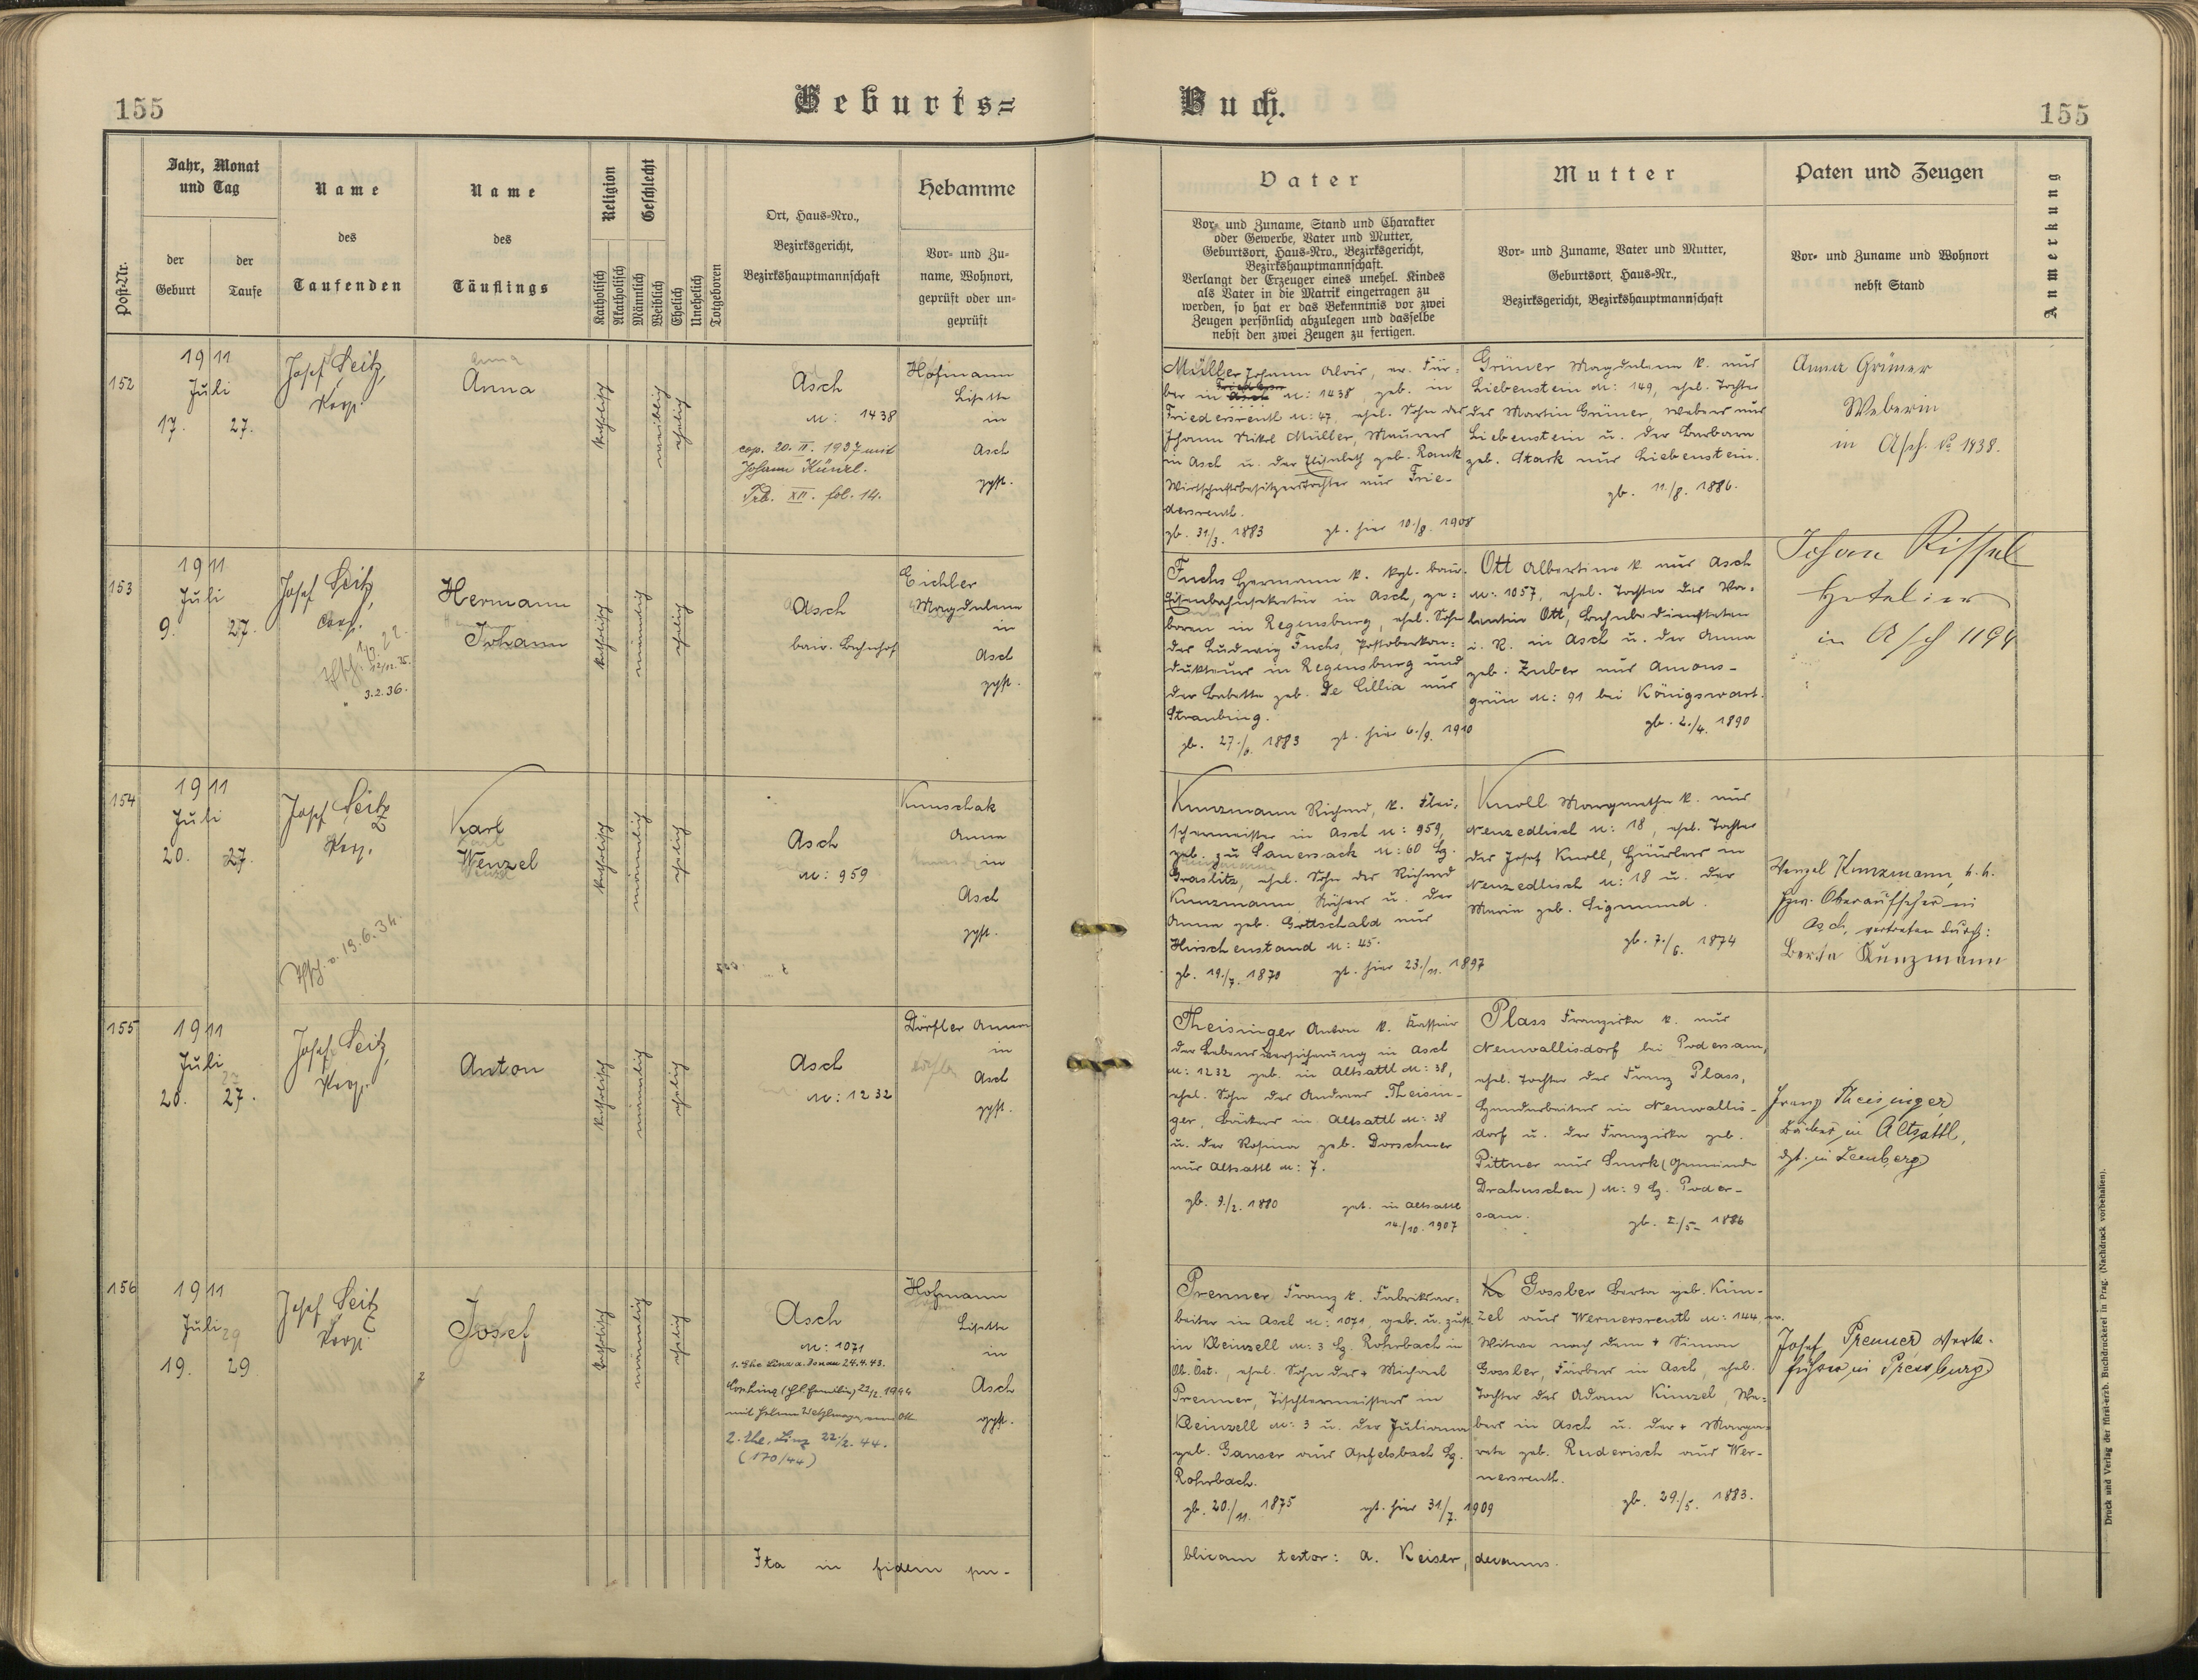 155
Geburts=
Buch.
155
Post-Nr.
Jahr, Monat
und Tag
der
Geburt
der
Taufe
Name
des
Taufenden
Name
des
Täuflings
Religion
Katholisch
Akatholisch
Geschlecht
Männlich
Weiblich
Ehelich
Unehelich
Totgeboren
Ort, Haus=Nro.,
Bezirksgericht,
Bezirkshauptmannschaft
Hebamme
Vor= und Zu=
name, Wohnort,
geprüft oder un=
geprüft
Vater
Vor= und Zuname, Stand und Charakter
oder Gewerbe, Vater und Mutter,
Geburtsort, Haus=Nro., Bezirksgericht,
Bezirkshauptmannschaft.
Verlangt der Erzeuger eines unehel. Kindes
als Vater in die Matrik eingetragen zu
werden, so hat er das Bekenntnis vor zwei
Zeugen persönlich abzulegen und dasselbe
nebst den zwei Zeugen zu fertigen.
Mutter
Vor= und Zuname, Vater und Mutter,
Geburtsort, Haus=Nr.,
Bezirksgericht, Bezirkshauptmannschaft
Paten und Zeugen
Vor= und Zuname und Wohnort
nebst Stand
Anmerkung
152
1911
Juli
17. 27.
Josef Seitz,
Koop.
Anna
katholisch
weiblich
ehelich
Asch
N: 1438
cop. 20. II. 1937 mit
Johann Künzl.
Trb. XII. fol. 14.
Hofmann
Lisette
in
Asch
gepft.
Müller Johann Alois, ev. Fär=
ber in Asch N: 1438, geb. in
Friedersreuth N: 47, ehel. Sohn des
Johann Nikol Müller, Maurers
in Asch u. der Elisabeth geb. Rank
Wirtschaftsbesitzerstochter aus Frie-
dersreuth.
gb. 31/3. 1883 gt. hier 10./8. 1908
Grüner Magdalena k. aus
Liebenstein N: 149, ehel. Tochter
des Martin Grüner, Webers aus
Liebenstein u. der Barbara
geb. Stark aus Liebenstein.
gb. 11./8. 1886.
Anna Grüner
Weberin
in Asch. No 1438.
153
1911
Juli
9. 27.
Josef Seitz,
Coop.
3.2.36.
Hermann
Johann
katholisch
männlich
ehelich
Asch
bair. Bahnhof
Eichler
Magdalena
in
Asch
gepft.
Fuchs Hermann k. kgl. bair.
Eisenbahnsekretär in Asch, ge=
boren in Regensburg, ehel. Sohn
des Ludwig Fuchs, Postoberkon=
dukteurs in Regensburg und
der Babette geb. De Cillia aus
Straubing.
gt. hier 6./9. 1910
Ott Albertine k. aus Asch
N: 1057, ehel. Tochter des Va=
lentin Ott, Bahnbediensteten
i. R. in Asch u. der Anna
geb. Zuber aus Amons-
grün N: 91 bei Königswart.
gb. 2./4. 1890
Johan
Hotelier
in Asch 1194
154
1911
Juli
20. 27.
Josef Seitz
Koop.
19.6.34.
Karl
Wenzel
katholisch
männlich
ehelich
Asch
N: 959
Kunschak
Anna
in
Asch
gepft.
Kunzmann Richard, k. Flei=
schermeister in Asch N: 959,
geb. zu Sauersack N: 60 Bz.
Graslitz, ehel. Sohn des Richard
Kunzmann, u. der
Anna geb. Gottschald aus
Hirschenstand N: 45.
gb. 19./7. 1870 gt. hier 23./11. 1897
Knoll Margaretha k. aus
Neuzedlisch N: 18, ehel. Tochter
des Josef Knoll, Häuslers in
Neuzedlisch N: 18 u. der
Maria geb. Sigmund.
gb. 7./6. 1874
Wenzel Kunzmann, k.k.
Oberaufseher in
Asch, vertreten durch:
Berta Kunzmann
155
1911
Juli
20. 27.
Josef Seitz,
Koop.
Anton
katholisch
männlich
ehelich
Asch
N: 1232
Dörfler Anna
in
Asch
gepft.
Theisinger Anton k. Kassier
der Lebensversicherung in Asch
N: 1232 geb. in Altsattl N: 38,
ehel. Sohn des Andreas Theisin-
ger, Bäckers in Altsattl N: 38
u. der Rosina geb. Dorschner
aus Altsattl N: 7.
gb. 9./2. 1880 get. in Altsattl
14./10. 1907
Plass Franziska k. aus
Neuwallisdorf bei Podersam,
ehel. Tochter des Franz Plass,
Handarbeiters in Neuwallis-
dorf u. der Franziska geb.
Pittner aus Smrk (Gemeinde
Drahuschen) N: 9 Bz. Poder-
sam. gb. 1886
Franz Theisinger
Bäcker in Altsattl,
dzt. in Lemberg
156
1911
Juli
19. 29
Josef Seitz
Koop.
Josef
katholisch
männlich
ehelich
Asch
N: 1071
1. Ehe Linz a. Donau 24.4.43.
(hl. Familie) 22/2. 1944
2. Ehe, Linz 22/2. 44.
(170/44)
Hofmann
Lisette
in
Asch
gepft.
Prenner Franz k. Fabriksar=
beiter in Asch N: 1071, geb. u. zust.
in Kleinzell N: 3 Bz. Rohrbach in
Ob. Öst., ehel. Sohn des + Michael
Prenner, Tischlermeisters in
Kleinzell N: 3 u. der Juliana
geb. Ganser aus Apfelsbach Bz.
Rohrbach.
gb. 20./11. 1875 gt. hier 31/7. 1909
Gossler Berta geb. Kün-
zel aus Wernersreuth N: 144, ev.
Witwe nach dem + Simon
Gossler, Färbers in Asch, ehel.
Tochter des Adam Künzel, We=
bers in Asch u. der + Marga=
rete geb. Ruderisch aus Wer-
nersreuth.
gb. 29./5. 1883.
Josef Prenner Werk-
führer in Pressburg
Ita in fidem pu-
blicam testor: A. Keiser, decanus.
Druck und Verlag der fürst-erzb. Buchdruckerei in Prag. (Nachdruck vorbehalten).